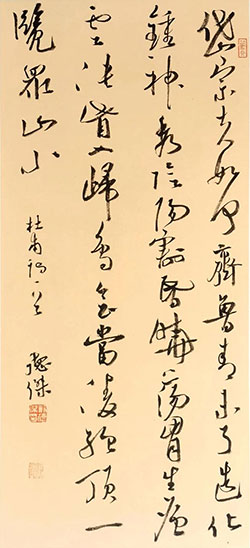 岱宗夫如何齊魯青未了造化
鍾神秀陰陽割昏曉蕩胸生層
雲決眥入歸鳥會當凌絕頂一
覽眾山小
杜甫詩一首
傑